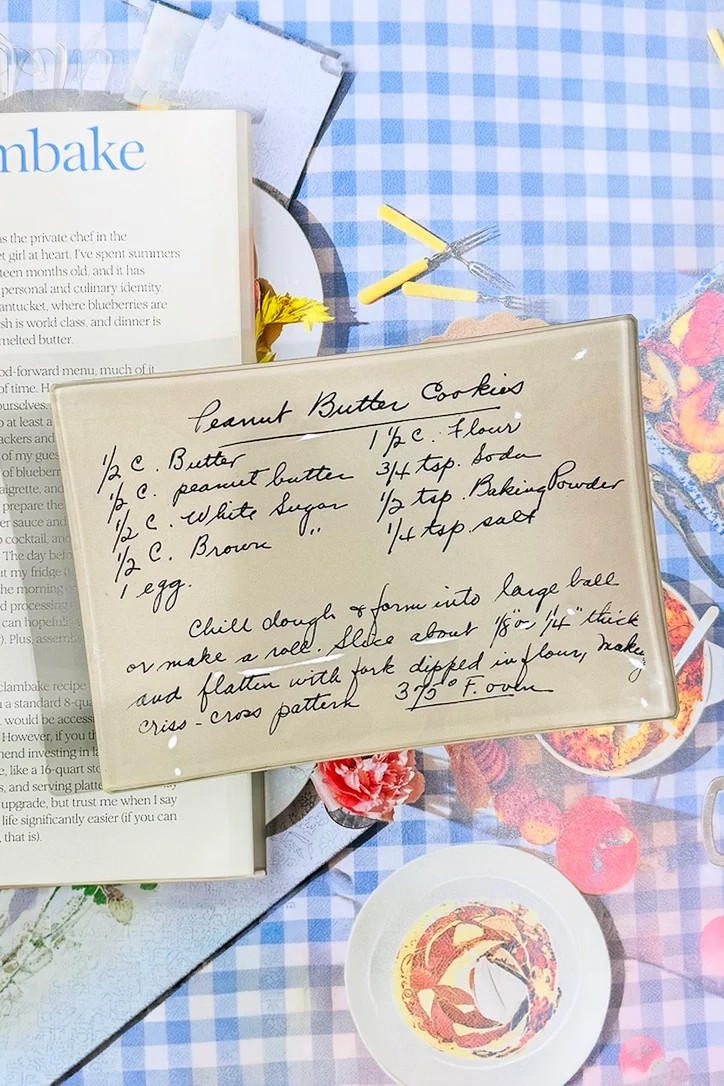 mbake
as the private chef in the
et girl at heart. I've spent summers
teen months old, and it has
personal and culinary identity.
antucket, where blueberries are
sh is world class, and dinner is
melted butter.
od-forward menu, much of it
of time. H
ourselves:
o at least a
ackers and
of my gues
of blueberr
aigrette, and
prepare the
er sauce and
o cocktail, and
The day bef
ut my fridge
the morning
d processing
can hopefull
). Plus, assemb
clambake recipe
a standard 8-qua
would be access
However, if you th
mend investing in la
e, like a 16-quart sto
s, and serving platte
upgrade, but trust me when I say
life significantly easier (if you can
, that is).
Peanut Butter Cookies
1/2 C. Butter
1/2 C. peanut butter
1/2 C. White Sugar
1/2 C. Brown "
1 egg.
1 1/2 C. Flour
3/4 tsp. Soda
1/2 tsp. Baking Powder
1/4 tsp. salt
Chill dough & form into large ball
or make a roll. Slice about 1/8" or 1/4" thick
and flatten with fork dipped in flour, making
criss-cross pattern 375° F. oven